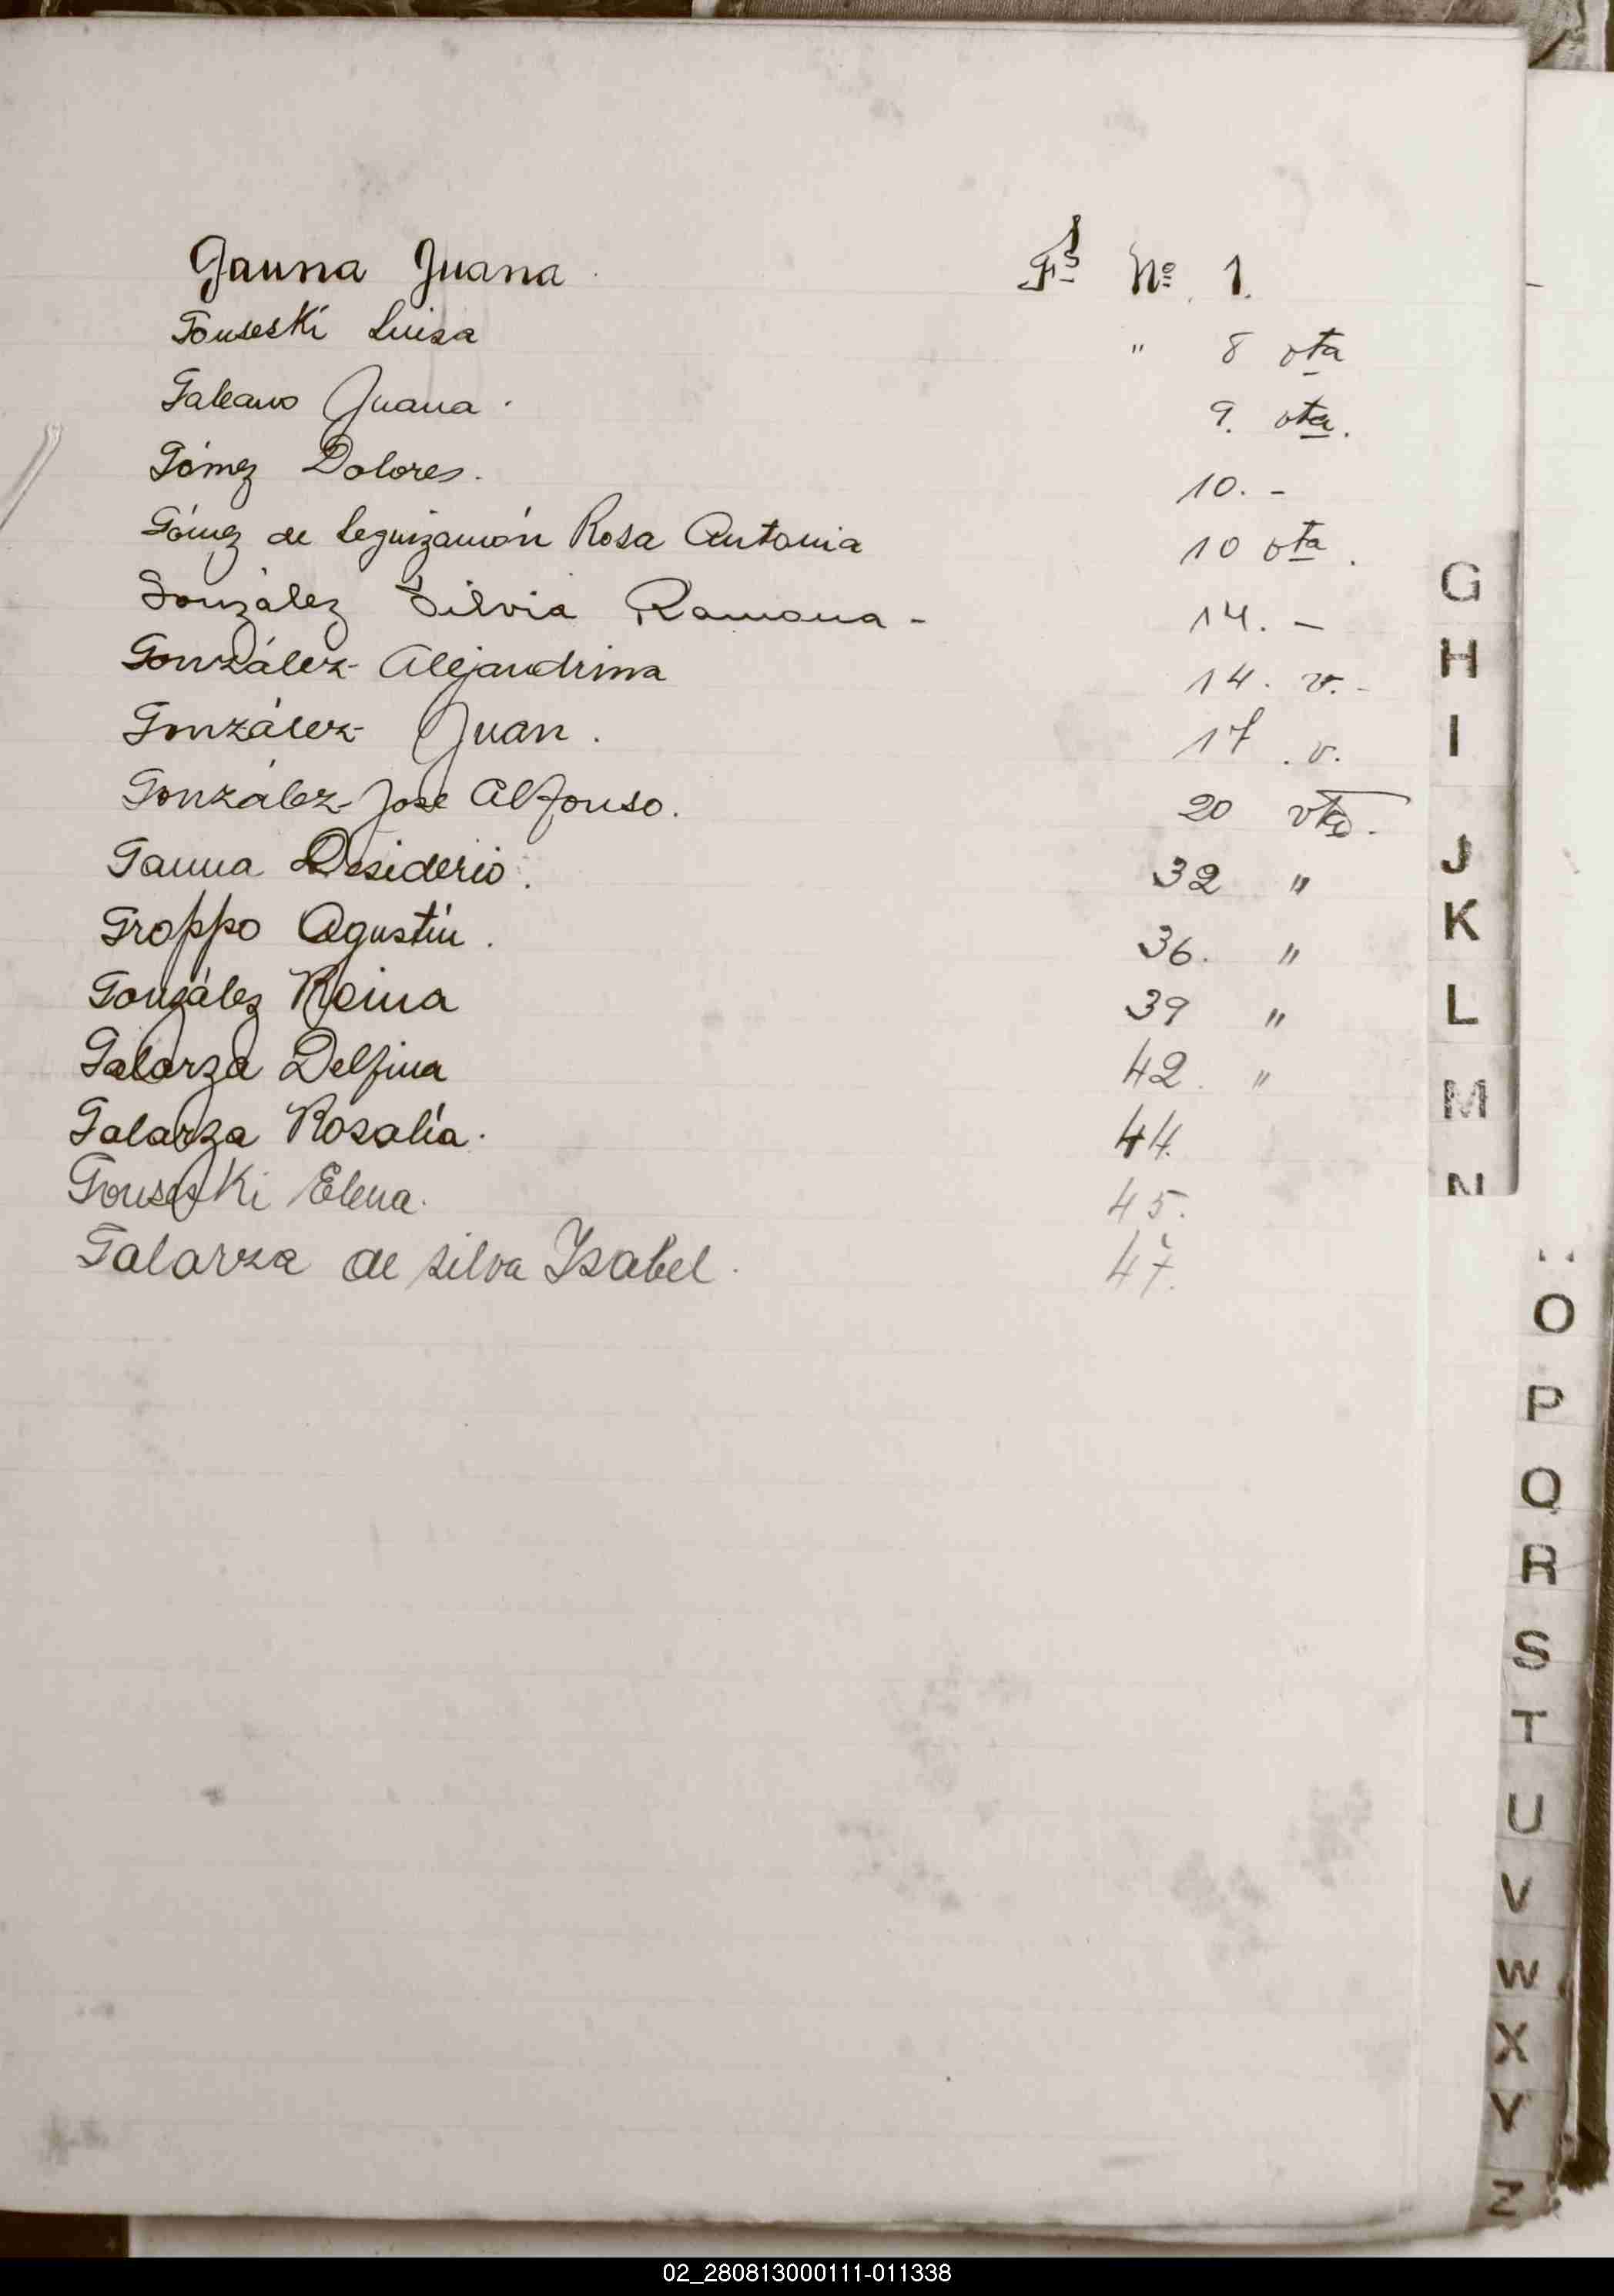 Gauna Juana. Fs Nº. 1.
Gouseski Luisa " 8 vta
Galeano Juana. 9. vta.
Gómez Dolores. 10. -
Gómez de Leguizamón Rosa Antonia 10 vta.
González Silvia Ramona - 14. -
González Alejandrina 14. v. -
González Juan. 17. v.
González José Alfonso. 20 vta.
Gauna Desiderio. 32 "
Groppo Agustín. 36. "
González Reina 39 "
Galarza Delfina 42. "
Galarza Rosalía. 44.
Gouseski Elena. 45.
Galarza de Silva Isabel. 47.
G
H
I
J
K
L
M
N
O
P
Q
R
S
T
U
V
W
X
Y
Z
02_280813000111-011338